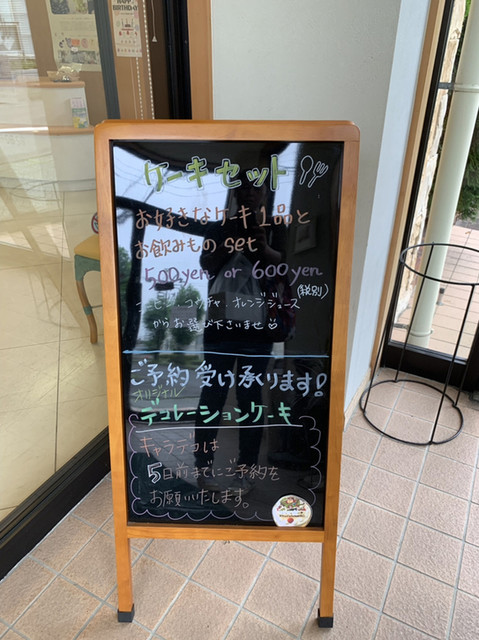 HAPPY BIRTHDAY
ケーキセット
お好きなケーキ1品と
お飲みもの set
500yen or 600yen
(税別)
コーヒー、コウチャ、オレンジジュース
からお選び下さいませ
ご予約受け承ります!
オリジナル
デコレーションケーキ
キャラデコは
5日前までにご予約を
お願いいたします。